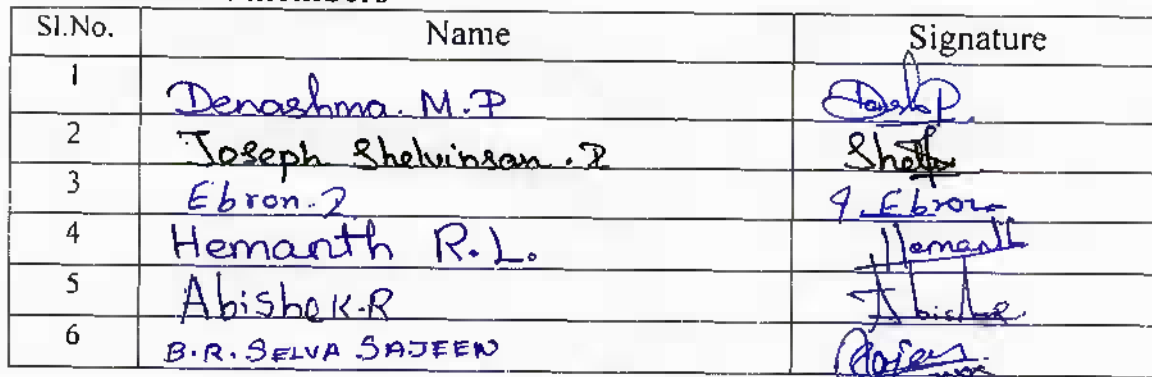 Sl.No. Name Signature
1 Denashma. M.P
2 Joseph Shelvinson .I
3 Ebron.I I.Ebron
4 Hemanth R.L. Hemanth
5 Abishek.R Abishek
6 B.R. SELVA SAJEEN